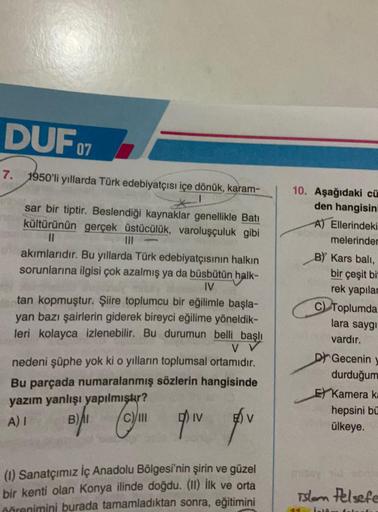 DUF 07
7. 1950'li yıllarda Türk edebiyatçısı içe dönük, karam-
I
sar bir tiptir. Beslendiği kaynaklar genellikle Batı
kültürünün gerçek üstücülük, varoluşçuluk gibi
II III
akımlarıdır. Bu yıllarda Türk edebiyatçısının halkın
sorunlarına ilgisi çok azalmış ya da büsbütün halk-
IV
tan kopmuştur. Şiire toplumcu bir eğilimle başla-
yan bazı şairlerin giderek bireyci eğilime yöneldik-
leri kolayca izlenebilir. Bu durumun belli başlı
V
nedeni şüphe yok ki o yılların toplumsal ortamıdır.
Bu parçada numaralanmış sözlerin hangisinde
yazım yanlışı yapılmıştır?
A) I B) II C) III D) IV E) V
(I) Sanatçımız İç Anadolu Bölgesi'nin şirin ve güzel
bir kenti olan Konya ilinde doğdu. (II) İlk ve orta
öğrenimini burada tamamladıktan sonra, eğitimini
10. Aşağıdaki cü
den hangisin
A) Ellerindeki
melerinden
B) Kars balı,
bir çeşit bi
rek yapılar
C) Toplumda
lara saygı
vardır.
D) Gecenin y
durduğum
E) Kamera k
hepsini bü
ülkeye.
İslam Felsefe